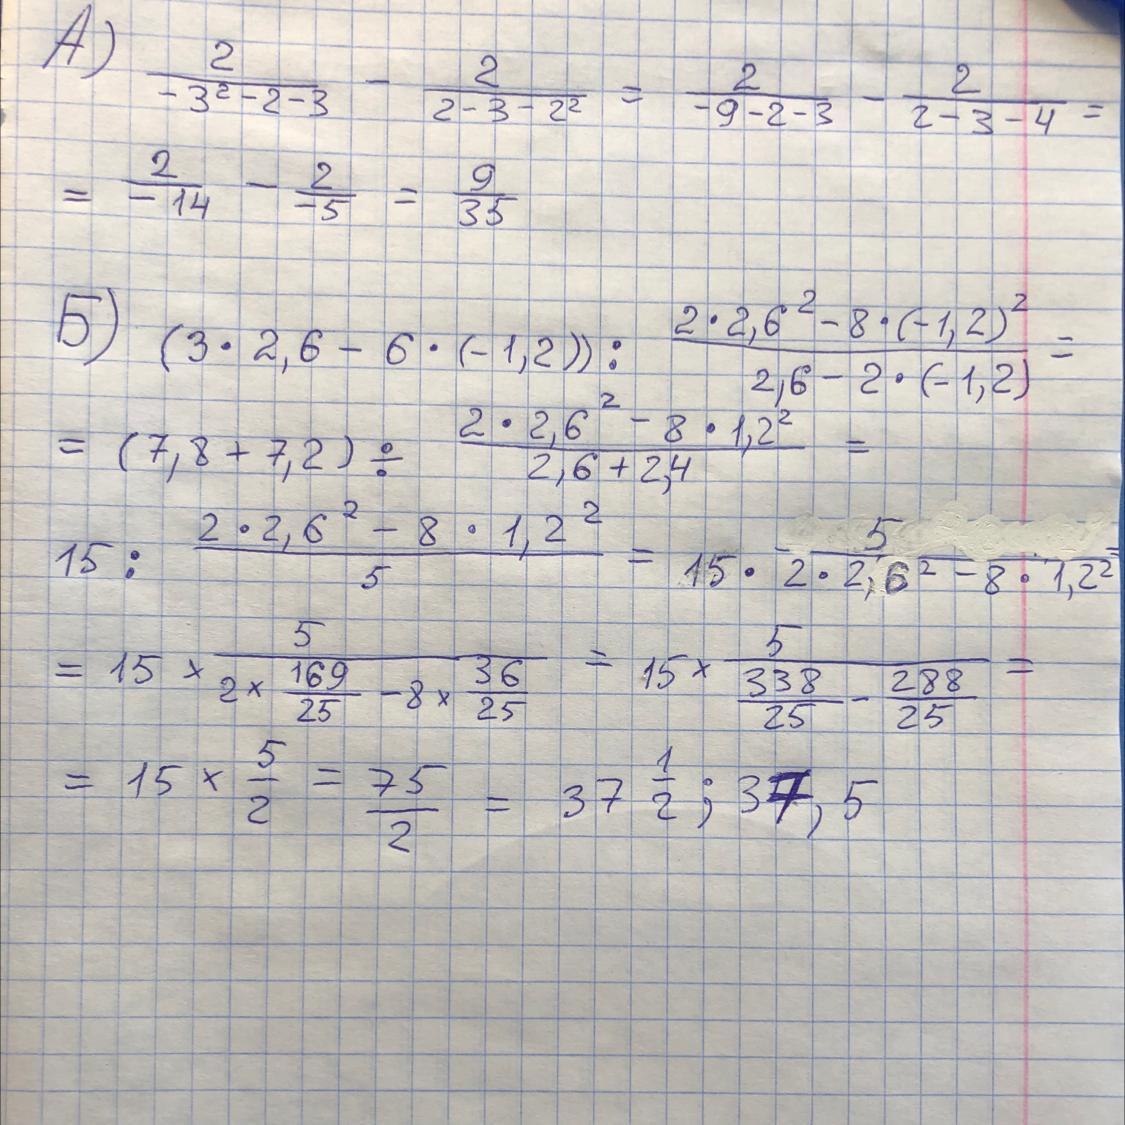 А) 2/(-3²-2-3) - 2/(2-3-2²) = 2/(-9-2-3) - 2/(2-3-4) =
= 2/(-14) - 2/(-5) = 9/35
Б) (3·2,6-6·(-1,2)): (2·2,6²-8·(-1,2)²)/(2,6-2·(-1,2)) =
= (7,8+7,2)÷ (2·2,6²-8·1,2²)/(2,6+2,4) =
15: (2·2,6²-8·1,2²)/5 = 15· 5/(2·2,6²-8·1,2²) =
= 15× 5/(2×169/25-8×36/25) = 15× 5/(338/25-288/25) =
= 15× 5/2 = 75/2 = 37 1/2; 37,5